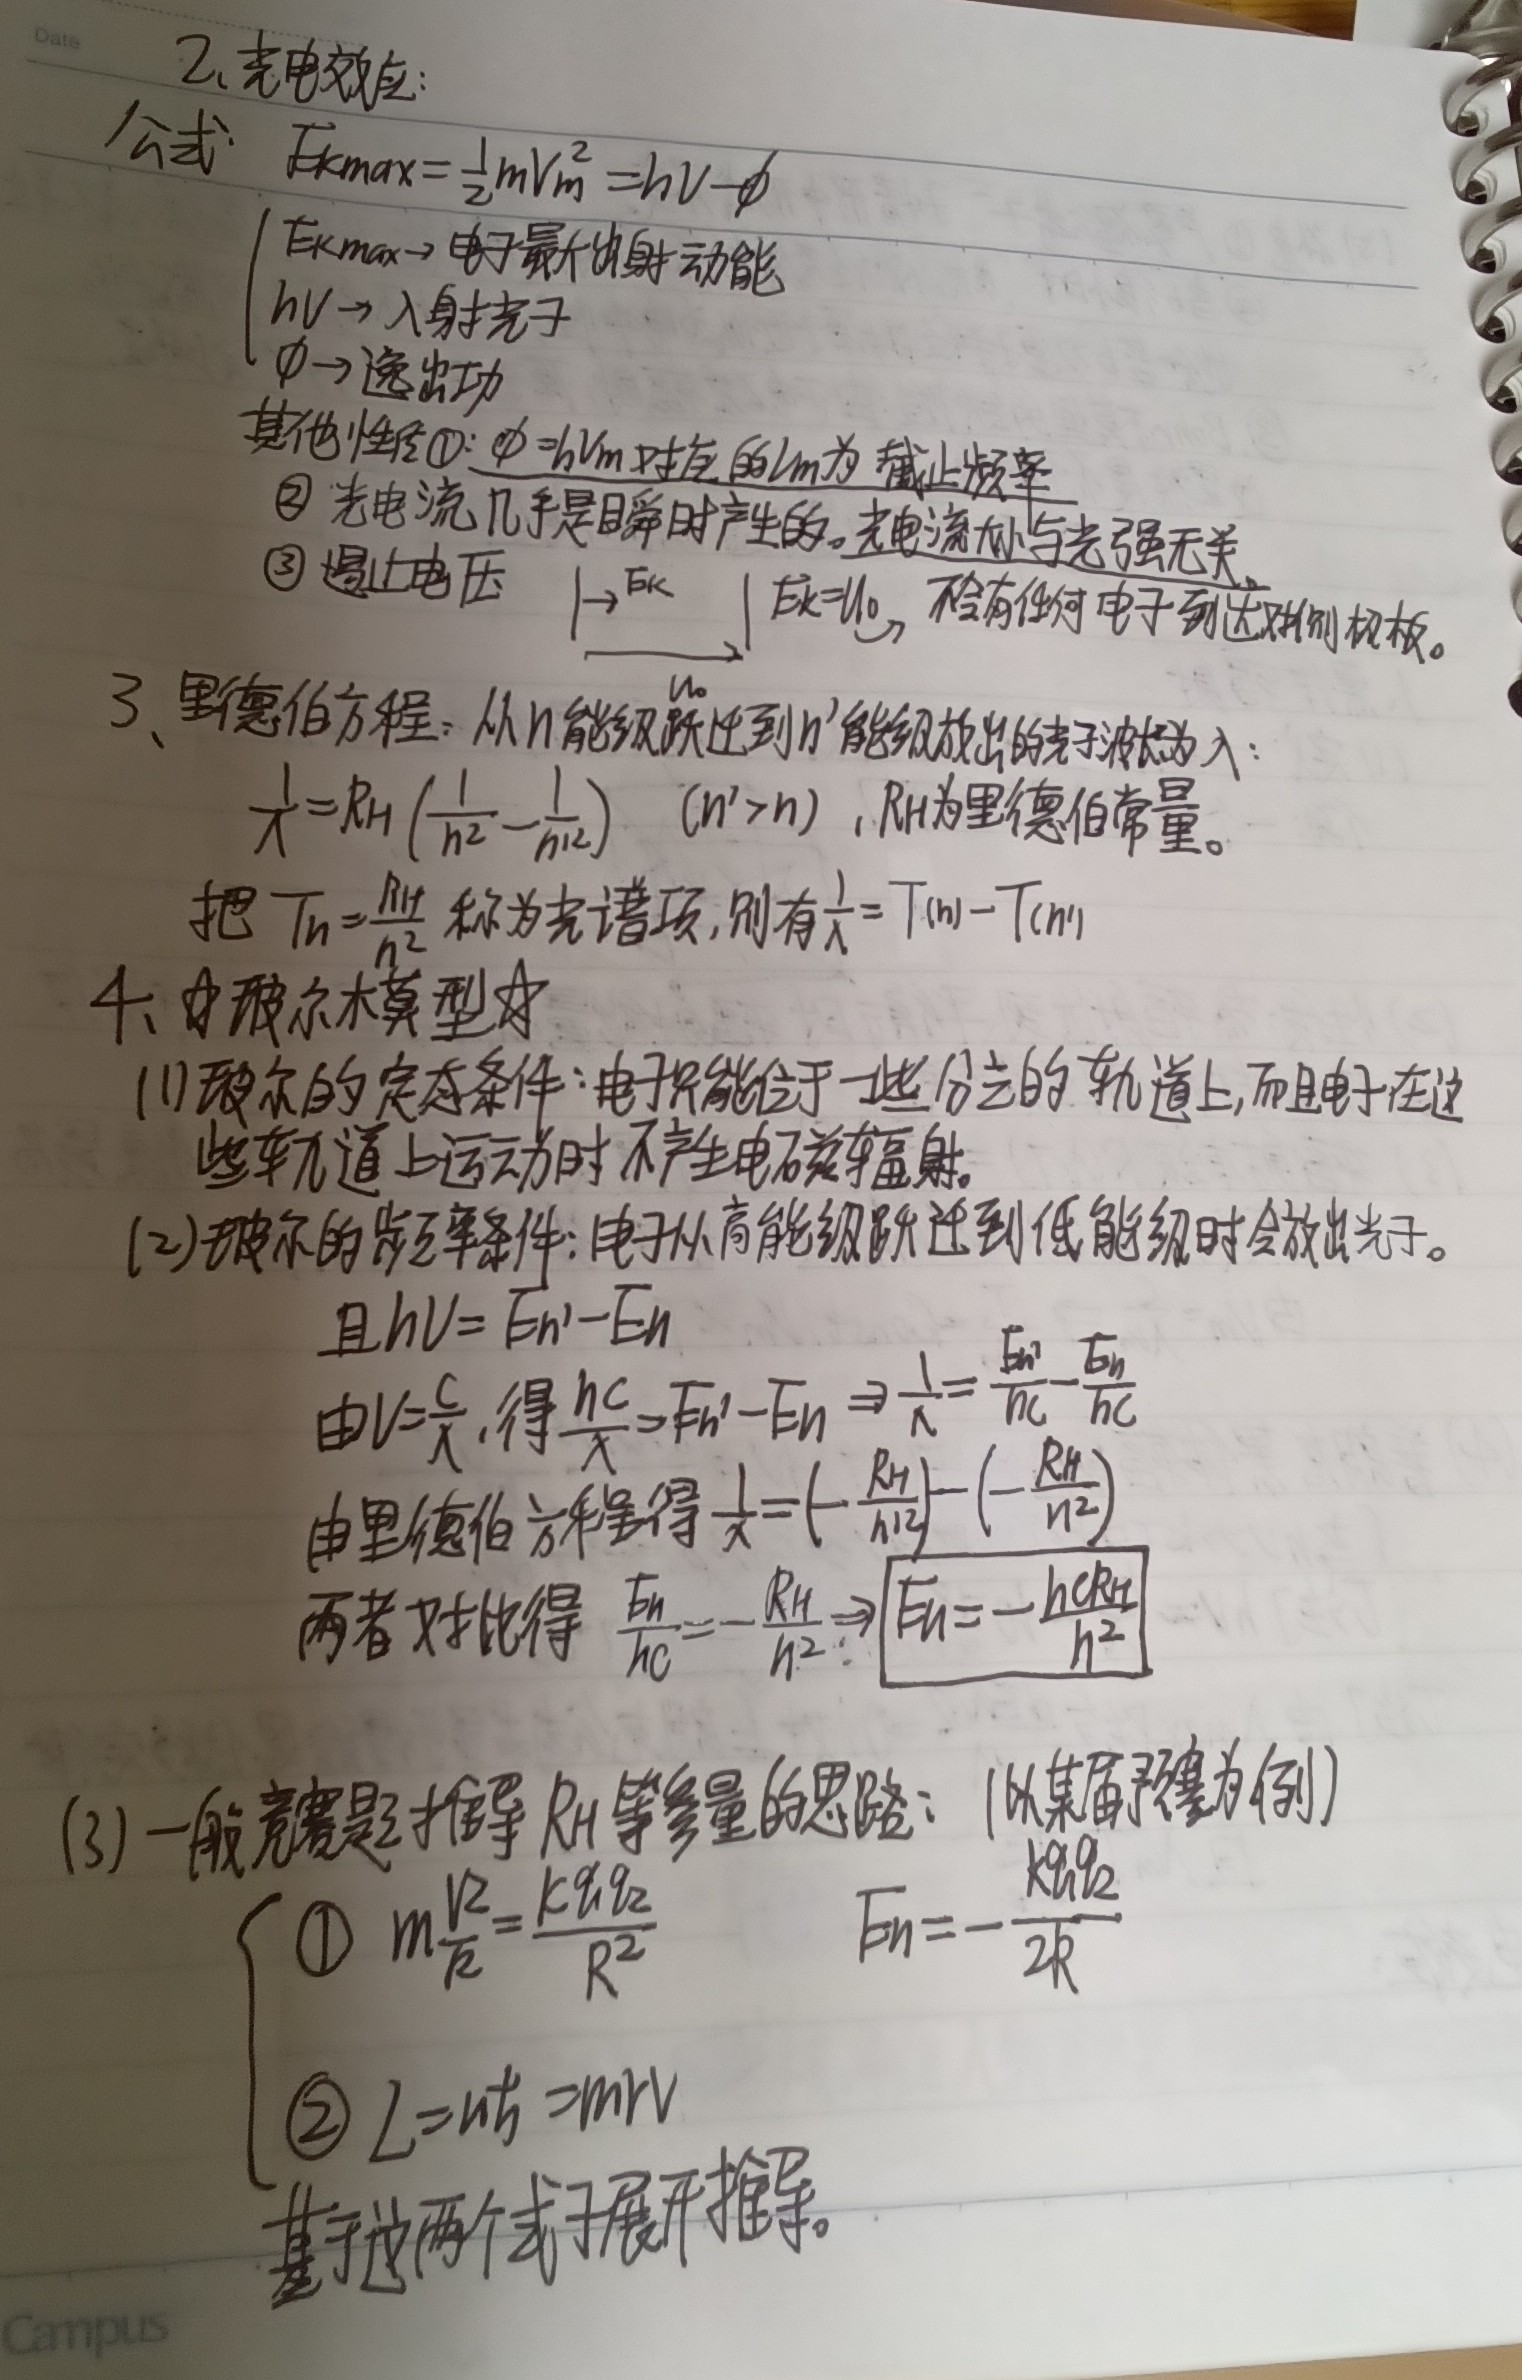 Date
2、光电效应：
公式： Ekmax=½mVm²=hν-ϕ
Ekmax→电子最大出射动能
hν→入射光子
ϕ→逸出功
其他性质①：ϕ=hνm对应的νm为截止频率
②光电流几乎是瞬时产生的。光电流大小与光强无关。
③遏止电压 →Ek U₀ Ek=U₀ 不会有任何电子到达对侧极板。
3、里德伯方程：从n能级跃迁到n'能级放出的光子波长为λ：
1/λ=RH(1/n²-1/n'²) (n'>n)，RH为里德伯常量。
把Tn=RH/n²称为光谱项，则有1/λ=T(n)-T(n')
4、☆玻尔模型☆
(1)玻尔的定态条件：电子只能位于一些分立的轨道上，而且电子在这
些轨道上运动时不产生电磁辐射。
(2)玻尔的频率条件：电子从高能级跃迁到低能级时会放出光子。
且hν=En'-En
由ν=c/λ，得hc/λ=En'-En⇒1/λ=En'/hc-En/hc
由里德伯方程得1/λ=(-RH/n'²)-(-RH/n²)
两者对比得 En/hc=-RH/n²⇒En=-hcRH/n²
(3)一般竞赛题推导RH等参量的思路：(以某届预赛为例)
① mV²/R=kq₁q₂/R² En=-kq₁q₂/2R
② L=nħ=mrv
基于这两个式子展开推导。
Campus